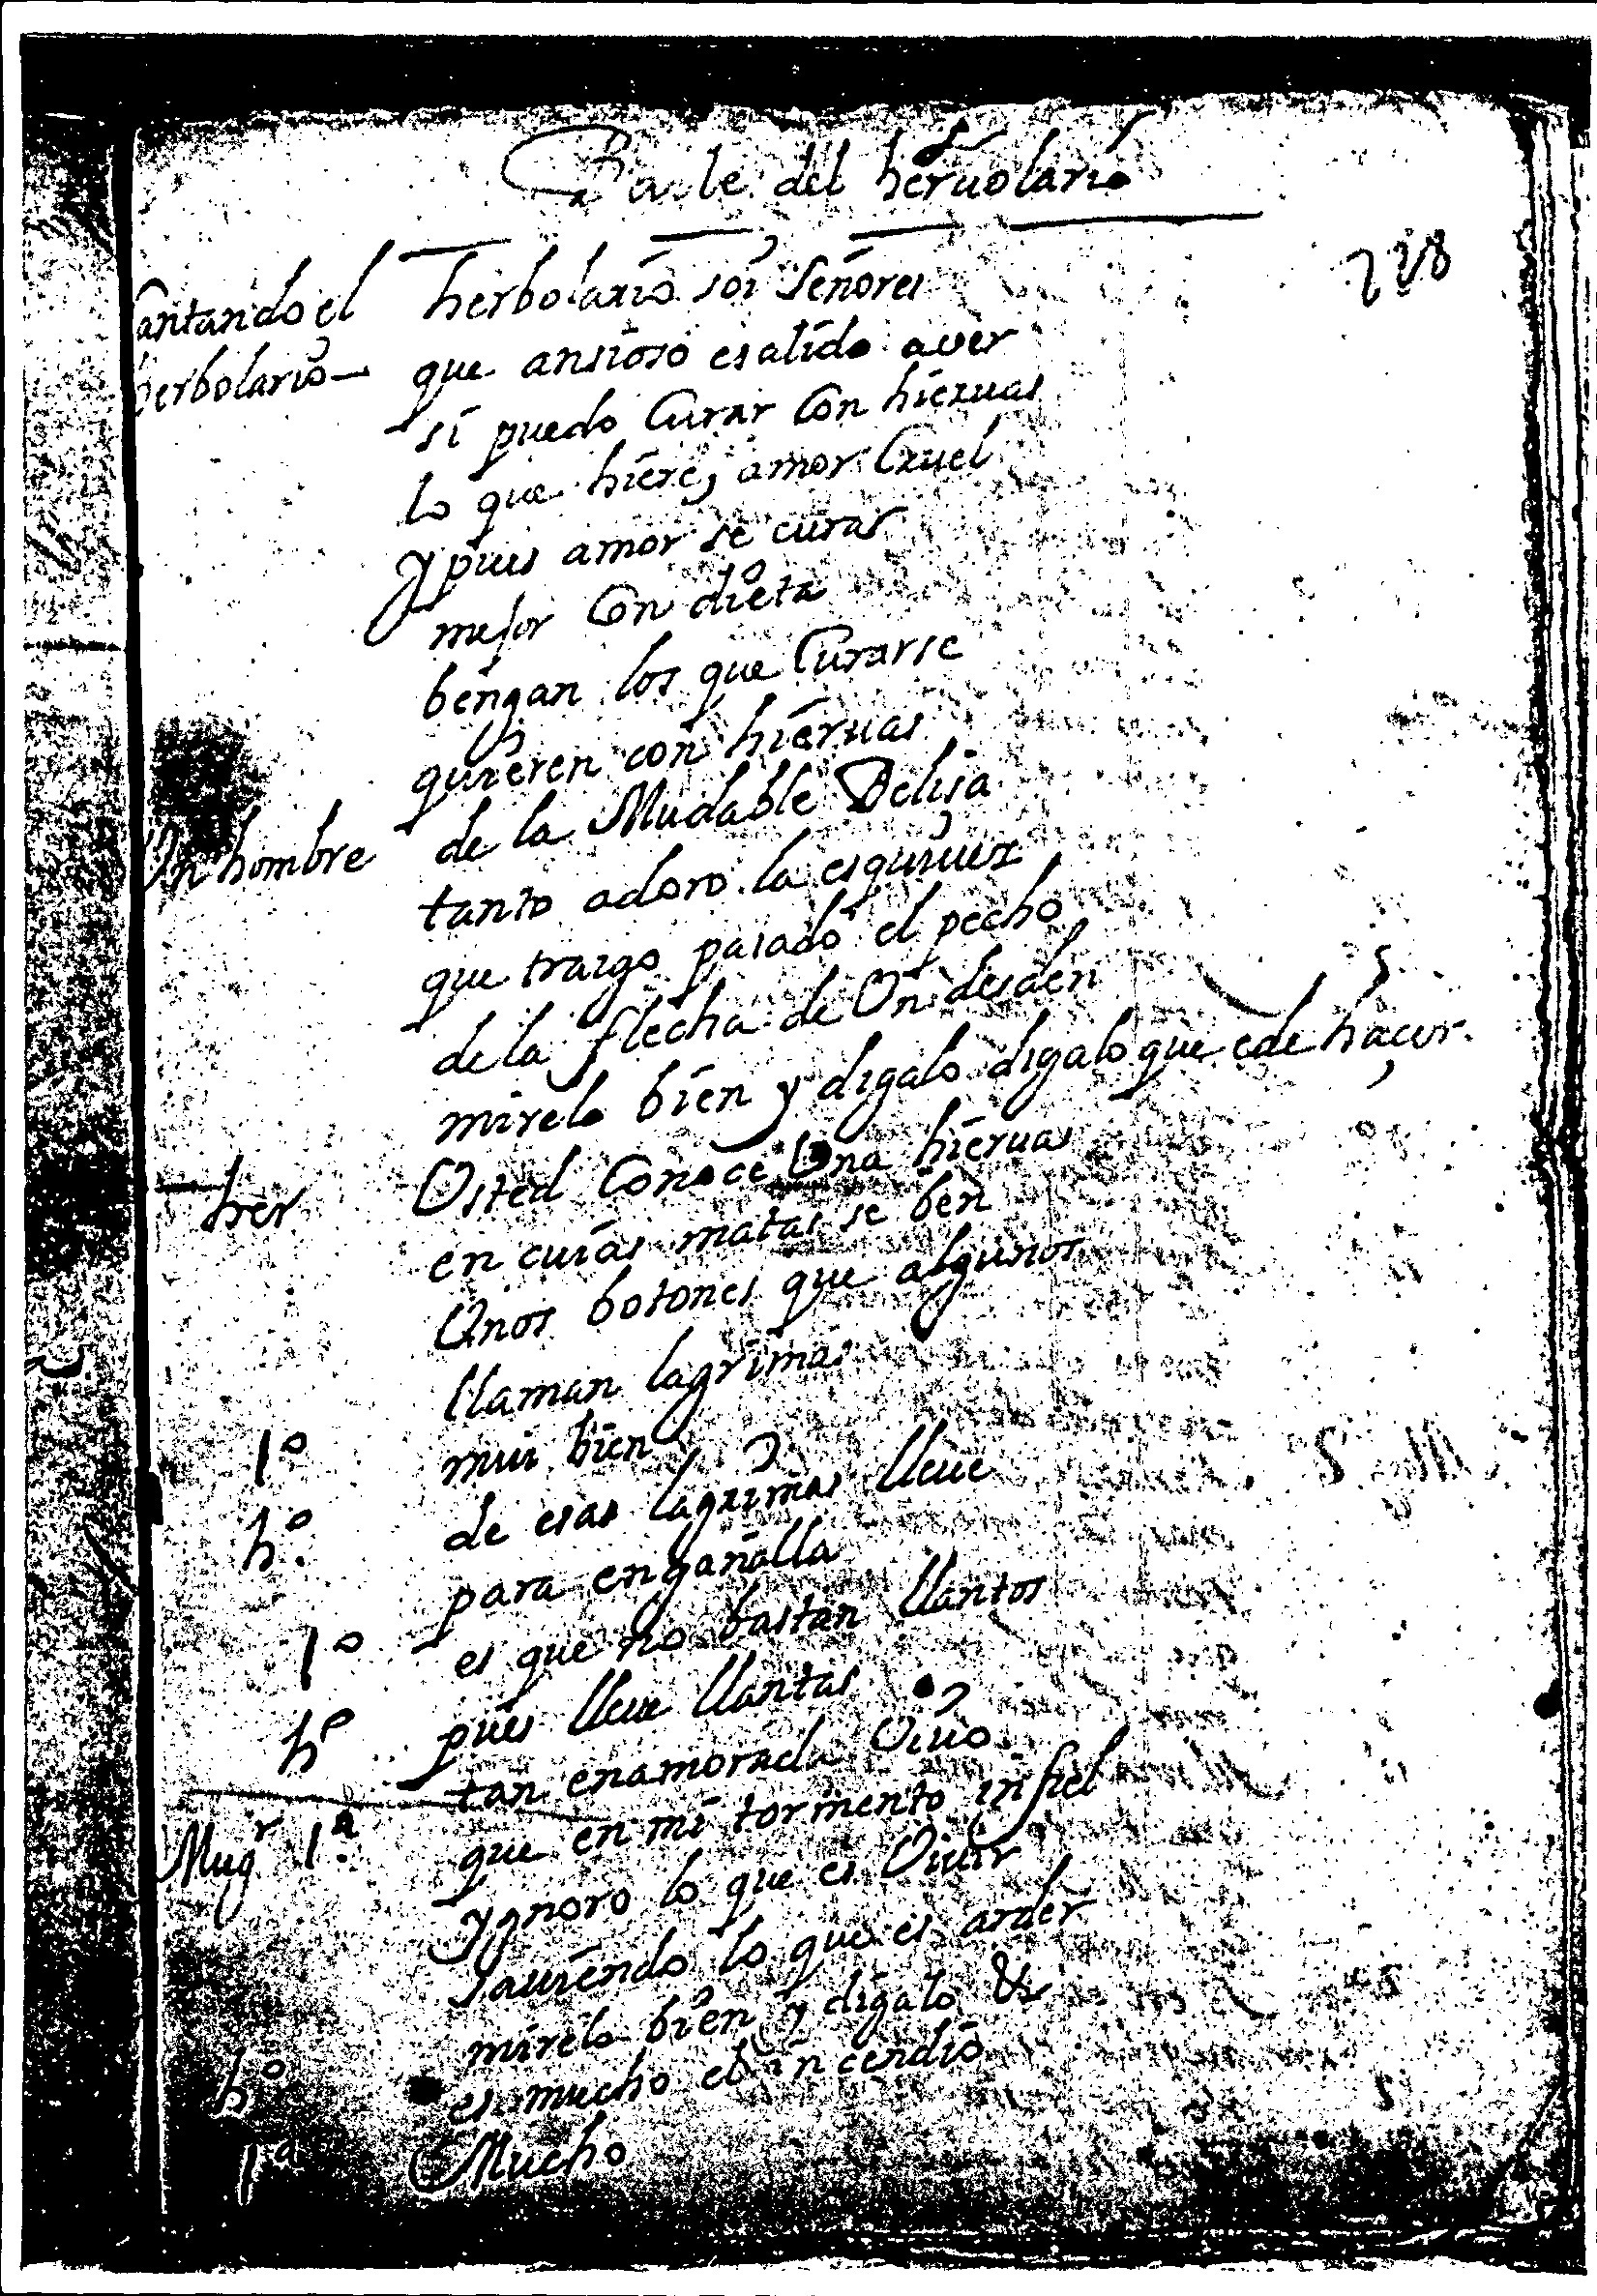 Baile del heruolario
228
Cantando el herbolario soi Señores
herbolario— que ansioso esalido auer
si puedo Curar Con hieruas
lo que hiere, amor Cruel
Y pues amor se curar
mejor Con dieta
bengan los que Curarse
quieren con hieruas
Vn hombre de la Mudable Delisa
tanto adoro la esquiuez
que traigo pasado el pecho
de la flecha de Vn desden
mirelo bien y digalo digalo que ede haçer.
her Vsted Conoce Vna hieruas
en cuias matas se ben
Vnos botones que algunos
llaman lagrimas
1º mui bien
hº de esas lagrimas lleue
para engañalla
1º es que no bastan llantos
hº pues lleue llantas
Mugr 1ª tan enamorada Viuo
que en mi tormento infiel
Ygnoro lo que es Viuir
Sauiendo lo que es arder
mirelo bien y digalo &
hº es mucho el incendio
1ª Mucho